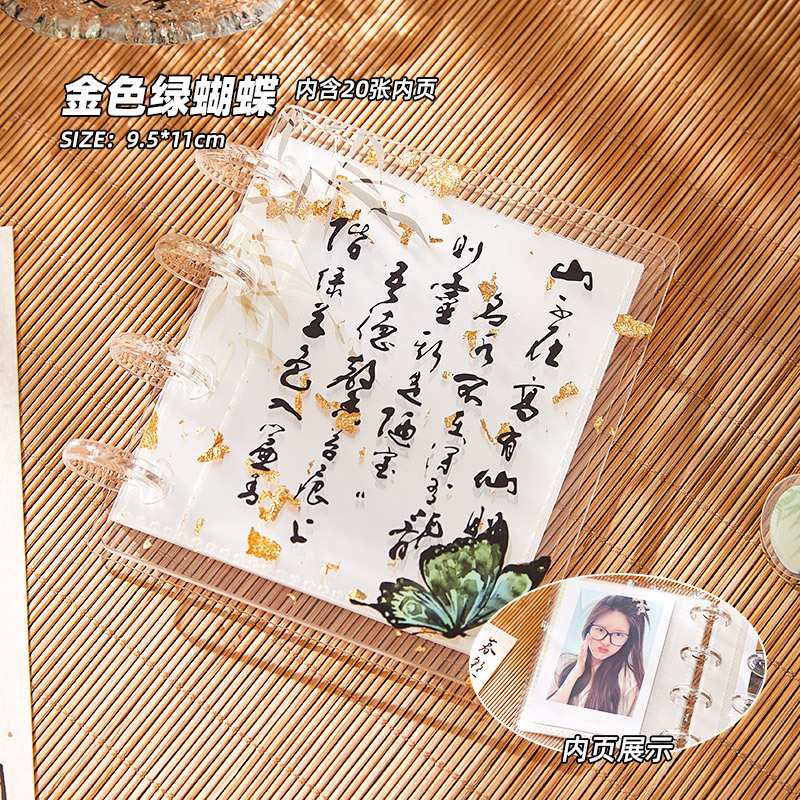 金色绿蝴蝶 内含20张内页
SIZE：9.5*11cm
山不在高有仙則
名水不在深有龍
則靈斯是陋室
吾德馨苔痕上
階綠草色入簾青
内页展示